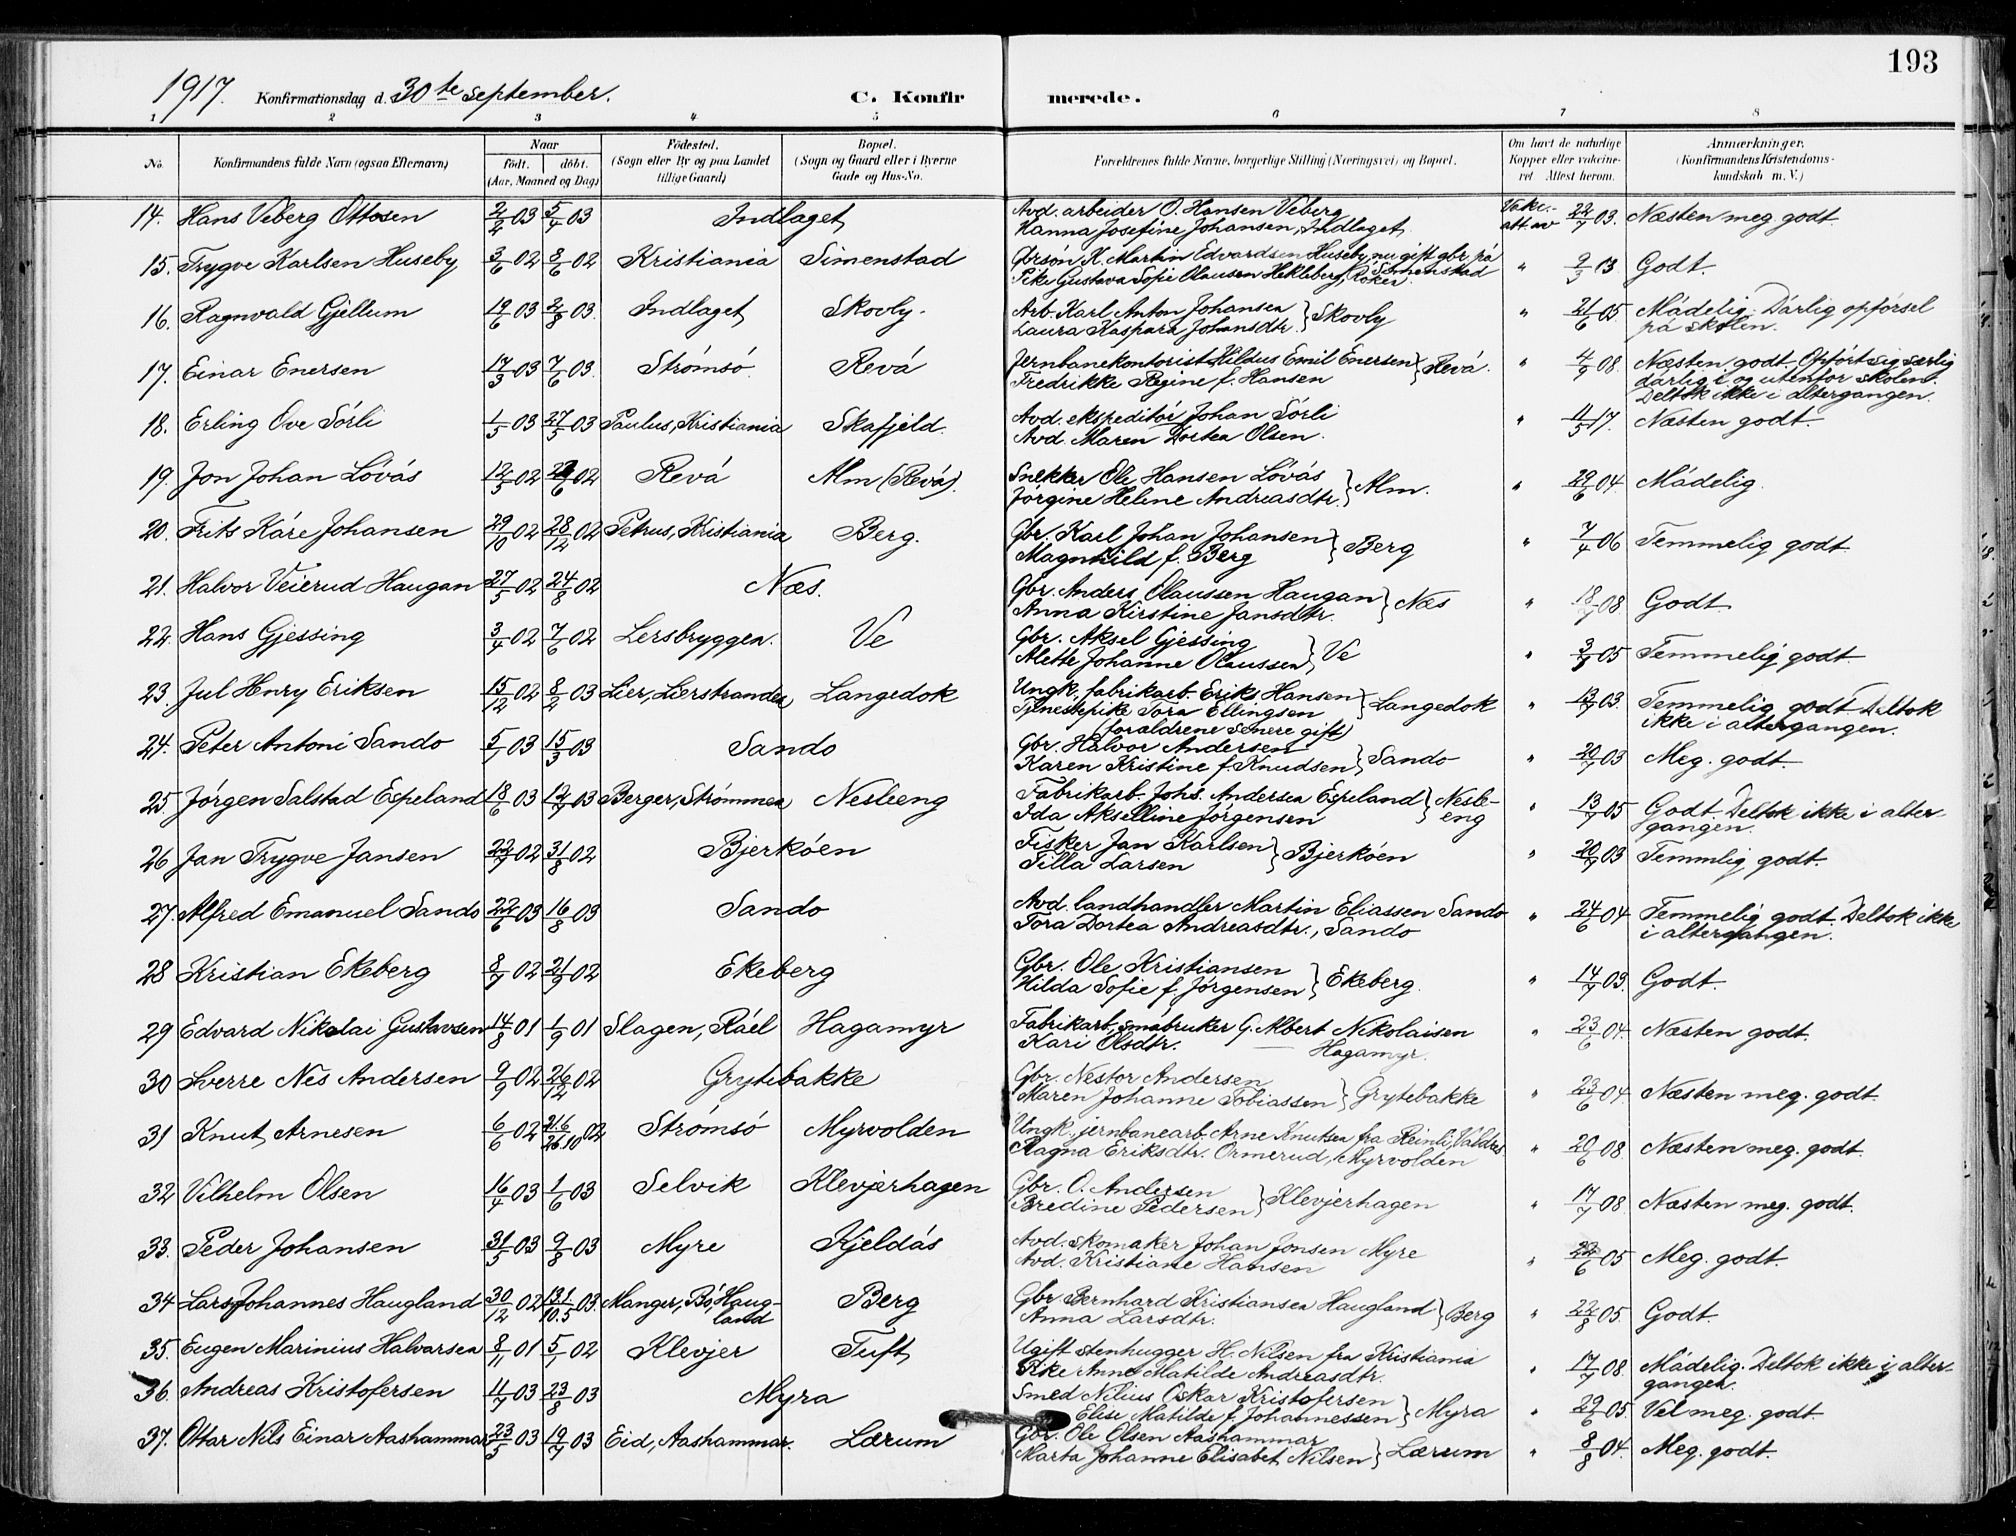 193
1917. Konfirmationsdag d. 30te september. C. Konfirmerede.
1 2 3 4 5 6 7 8
No. Konfirmandens fulde Navn (ogsaa Efternavn) Naar født. døbt. (Aar, Maaned og Dag) Fødested. (Sogn eller By og paa Landet tillige Gaard) Bopæl. (Sogn og Gaard eller i Byerne Gade og Hus-No. Forældrenes fulde Navne, borgerlige Stilling (Næringsvei) og Bopæl. Om havt de naturlige Kopper eller vaccineret. Attest herom. Anmærkninger. (Konfirmandens Kristendomskundskab m. V.)
14. Hans Veberg Ottosen 2/2 03 5/4 03 Indlaget Avd. arbeider O. Hansen Veberg Vakc.- 22/7 03. Næsten meg. godt.
Hanna Josefine Johansen, Indlaget. att. av
15. Trygve Karlsen Huseby 3/6 02 8/6 02 Kristiania Simenstad Gbrsøn K. Martin Edvardsen Huseby, nu gift gbr. på Simenstad " 9/3 13 Godt.
Pike Gustava Sofie Olausen Hekleberg, Røken.
16. Ragnvald Gjellum 19/6 03 2/8 03. Indlaget Skovly. Arb. Karl Anton Johansen } Skovly " 21/6 05. Mådelig. Dårlig opførsel
Laura Kaspara Johansdtr. på skolen.
17. Einar Enersen 17/3 03 7/6 03. Strømsø. Revå Jernbanekontorist Hildus Emil Enersen } Revå. " 4/7 08. Næsten godt. Opført sig særlig
Fredrikke Regine f. Hansen dårlig i og utenfor skolen.
Deltok ikke i altergangen.
18. Erling Ove Sørli 1/5 03 27/5 03 Paulus, Kristiania Skafjeld. Avd. ekspeditør Johan Sørli " 11/5 17. Næsten godt.
Avd. Maren Dortea Olsen.
19. Jon Johan Løvås 12/5 02 /6 02 Revå Alm (Revå). Snekker Ole Hansen Løvås } Alm. " 29/6 04. Mådelig.
Jørgine Helene Andreasdtr.
20. Frits Kåre Johansen 29/10 02 28/12 02 Petrus, Kristiania Berg. Gbr. Karl Johan Johansen } Berg " 7/4 06 Temmelig godt.
Magnhild f. Berg
21. Halvor Veierud Haugan 27/5 02 24/8 02 Næs. Gbr. Anders Olaussen Haugan } Næs " 18/7 08. Godt
Anna Kirstine Jansdtr.
22. Hans Gjessing 3/4 02 7/6 02 Lersbryggen. Ve Gbr. Aksel Gjessing } Ve " 3/7 05 Temmelig godt
Alette Johanne Olaussen
23. Jul Henry Eriksen 15/12 02 8/2 03 Lier, Lierstranden Langedok Ungk. fabrikarb. Eriks Hansen } Langedok " 13/7 03. Temmelig godt. Deltok
Tjenestepike Tora Ellingsen ikke i altergangen.
(forældrene senere gift)
24. Peter Antoni Sando 5/1 03 15/3 03 Sando Gbr. Halvor Andersen } Sando " 20/7 03 Meg. godt.
Karen Kristine f. Knudsen
25. Jørgen Salstad Espeland 18/6 03 12/7 03 Berger, Strømmen Nesleeng Fabrikarb. Johs. Andersen Espeland } Nesle- " 13/7 05 Godt. Deltok ikke i alter-
Ida Akselline Jørgensen eng gangen.
26 Jan Trygve Jansen 22/7 02 31/8 02 Bjerkøen Fisker Jan Karlsen } Bjerkøen " 20/7 03 Temmlig godt.
Tilla Larsen
27. Alfred Emanuel Sando 22/6 03 16/8 03 Sando Avd. landhandler Martin Eliassen Sando " 24/6 04. Temmelig godt. Deltok ikke
Tora Dortea Andreasdtr., Sando i altergangen.
28 Kristian Ekeberg 8/7 02 21/9 02 Ekeberg Gbr. Ole Kristiansen } Ekeberg. " 14/7 03. Godt.
Hilda Sofie f. Jørgensen
29 Edvard Nikolai Gustavsen 14/8 01 1/9 01 Slagen, Råel Hagamyr Fabrikarb., småbruker G. Albert Nikolaisen " 23/6 04. Næsten godt.
Kari Olsdtr. — Hagamyr.
30 Sverre Nes Andersen 9/9 02 26/12 02 Grytebakke Gbr. Nestor Andersen } Grytebakke " 23/6 04. Næsten meg. godt.
Maren Johanne Tobiassen
31 Knut Arnesen 6/6 02 21.6/26.10 02 Strømsø Myrvolden Ungk. jernbanearb. Arne Knutsen fra Reinli, Valdres " 20/6 08. Næsten meg. godt.
Ragna Eriksdtr. Ormerud, Myrvolden
32 Vilhelm Olsen 16/4 03 1/6 03 Selvik Klevjerhagen Gbr. O. Andersen } Klevjerhagen " 17/7 08. Næsten meg. godt.
Bredine Pedersen
33. Peder Johansen 31/5 03 9/8 03 Myre Kjeldås Avd. skomaker Johan Jonsen Myre " 22/6 05 Meg. godt.
Avd. Kristiane Hansen
34 Lars Johannes Haugland 30/12 02 13.1/10.5 03. Manger, Bø, Haug- Berg Gbr. Bernhard Kristiansen Haugland } Berg " 22/8 05. Godt.
land Anna Larsdtr.
35. Eugen Marinius Halvorsen 8/11 01 5/1 02 Klevjer Tuft Ugift stenhugger H. Nilsen fra Kristiania " 17/7 08. Mådelig. Deltok ikke i alter-
Pike Anne Matilde Andreasdtr. gangen.
36. Andreas Kristofersen 11/7 03 23/8 03 Myra Smed Nilius Oskar Kristofersen } Myra " 29/6 05. Vel meg. godt.
Elise Matilde f. Johannessen
37. Ottar Nils Einar Aashammar 23/5 03 19/7 03 Eid, Aashammar. Lærum Gbr. Ole Olsen Aashammar } Lærum " 8/8 04. Meg. godt.
Marta Johanne Elisabet Nilsen